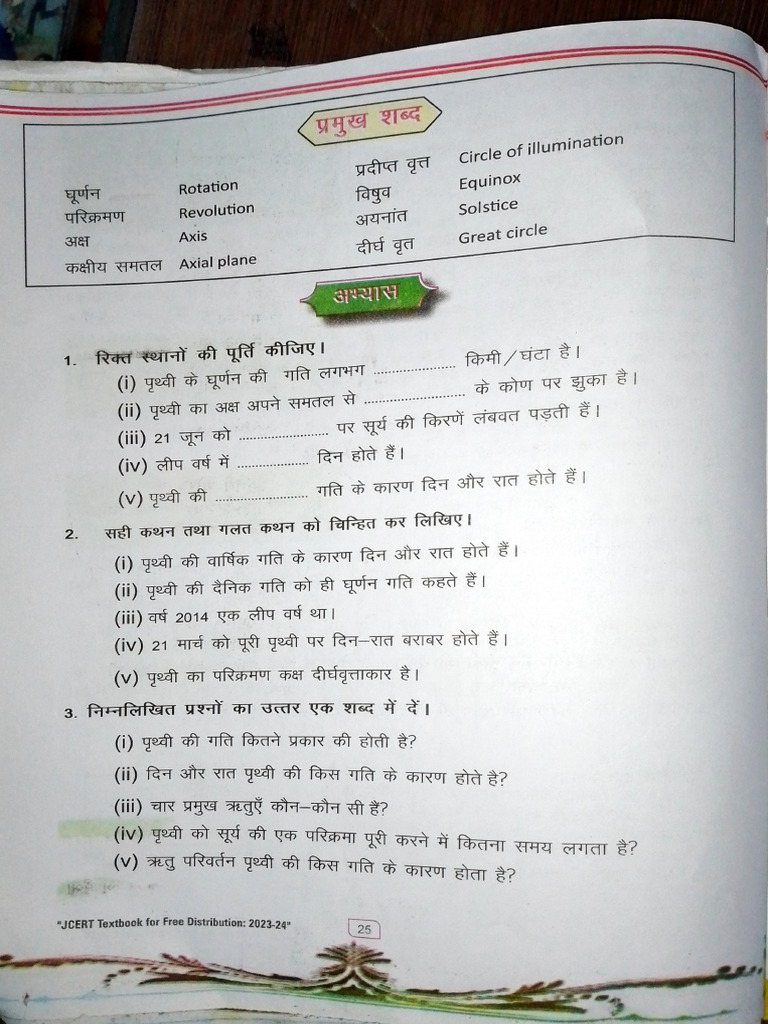 प्रमुख शब्द
घूर्णन Rotation प्रदीप्त वृत्त Circle of illumination
परिक्रमण Revolution विषुव Equinox
अक्ष Axis अयनांत Solstice
कक्षीय समतल Axial plane दीर्घ वृत Great circle
अभ्यास
1. रिक्त स्थानों की पूर्ति कीजिए।
(i) पृथ्वी के घूर्णन की गति लगभग ..................... किमी/घंटा है।
(ii) पृथ्वी का अक्ष अपने समतल से .......................... के कोण पर झुका है।
(iii) 21 जून को ....................... पर सूर्य की किरणें लंबवत पड़ती हैं।
(iv) लीप वर्ष में .................. दिन होते हैं।
(v) पृथ्वी की ........................ गति के कारण दिन और रात होते हैं।
2. सही कथन तथा गलत कथन को चिन्हित कर लिखिए।
(i) पृथ्वी की वार्षिक गति के कारण दिन और रात होते हैं।
(ii) पृथ्वी की दैनिक गति को ही घूर्णन गति कहते हैं।
(iii) वर्ष 2014 एक लीप वर्ष था।
(iv) 21 मार्च को पूरी पृथ्वी पर दिन–रात बराबर होते हैं।
(v) पृथ्वी का परिक्रमण कक्ष दीर्घवृत्ताकार है।
3. निम्नलिखित प्रश्नों का उत्तर एक शब्द में दें।
(i) पृथ्वी की गति कितने प्रकार की होती है?
(ii) दिन और रात पृथ्वी की किस गति के कारण होते है?
(iii) चार प्रमुख ऋतुएँ कौन–कौन सी हैं?
(iv) पृथ्वी को सूर्य की एक परिक्रमा पूरी करने में कितना समय लगता है?
(v) ऋतु परिवर्तन पृथ्वी की किस गति के कारण होता है?
"JCERT Textbook for Free Distribution: 2023-24"
25